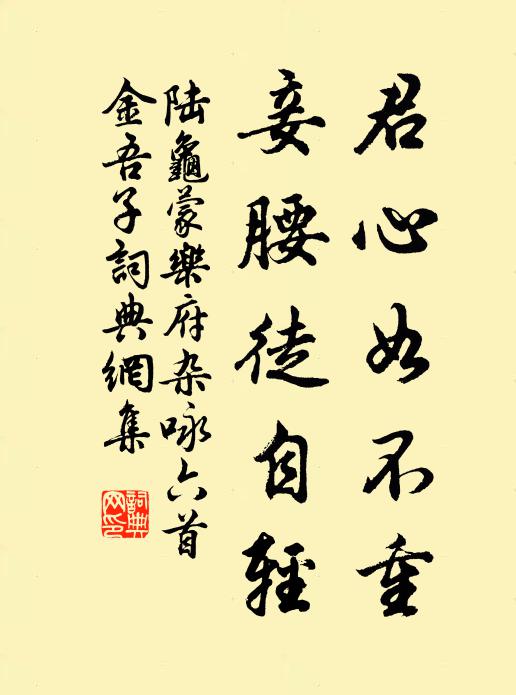 君心如不重
妾腰徒自輕
陆龜蒙樂府杂咏六首
金吾子詞典網集
詞典网印